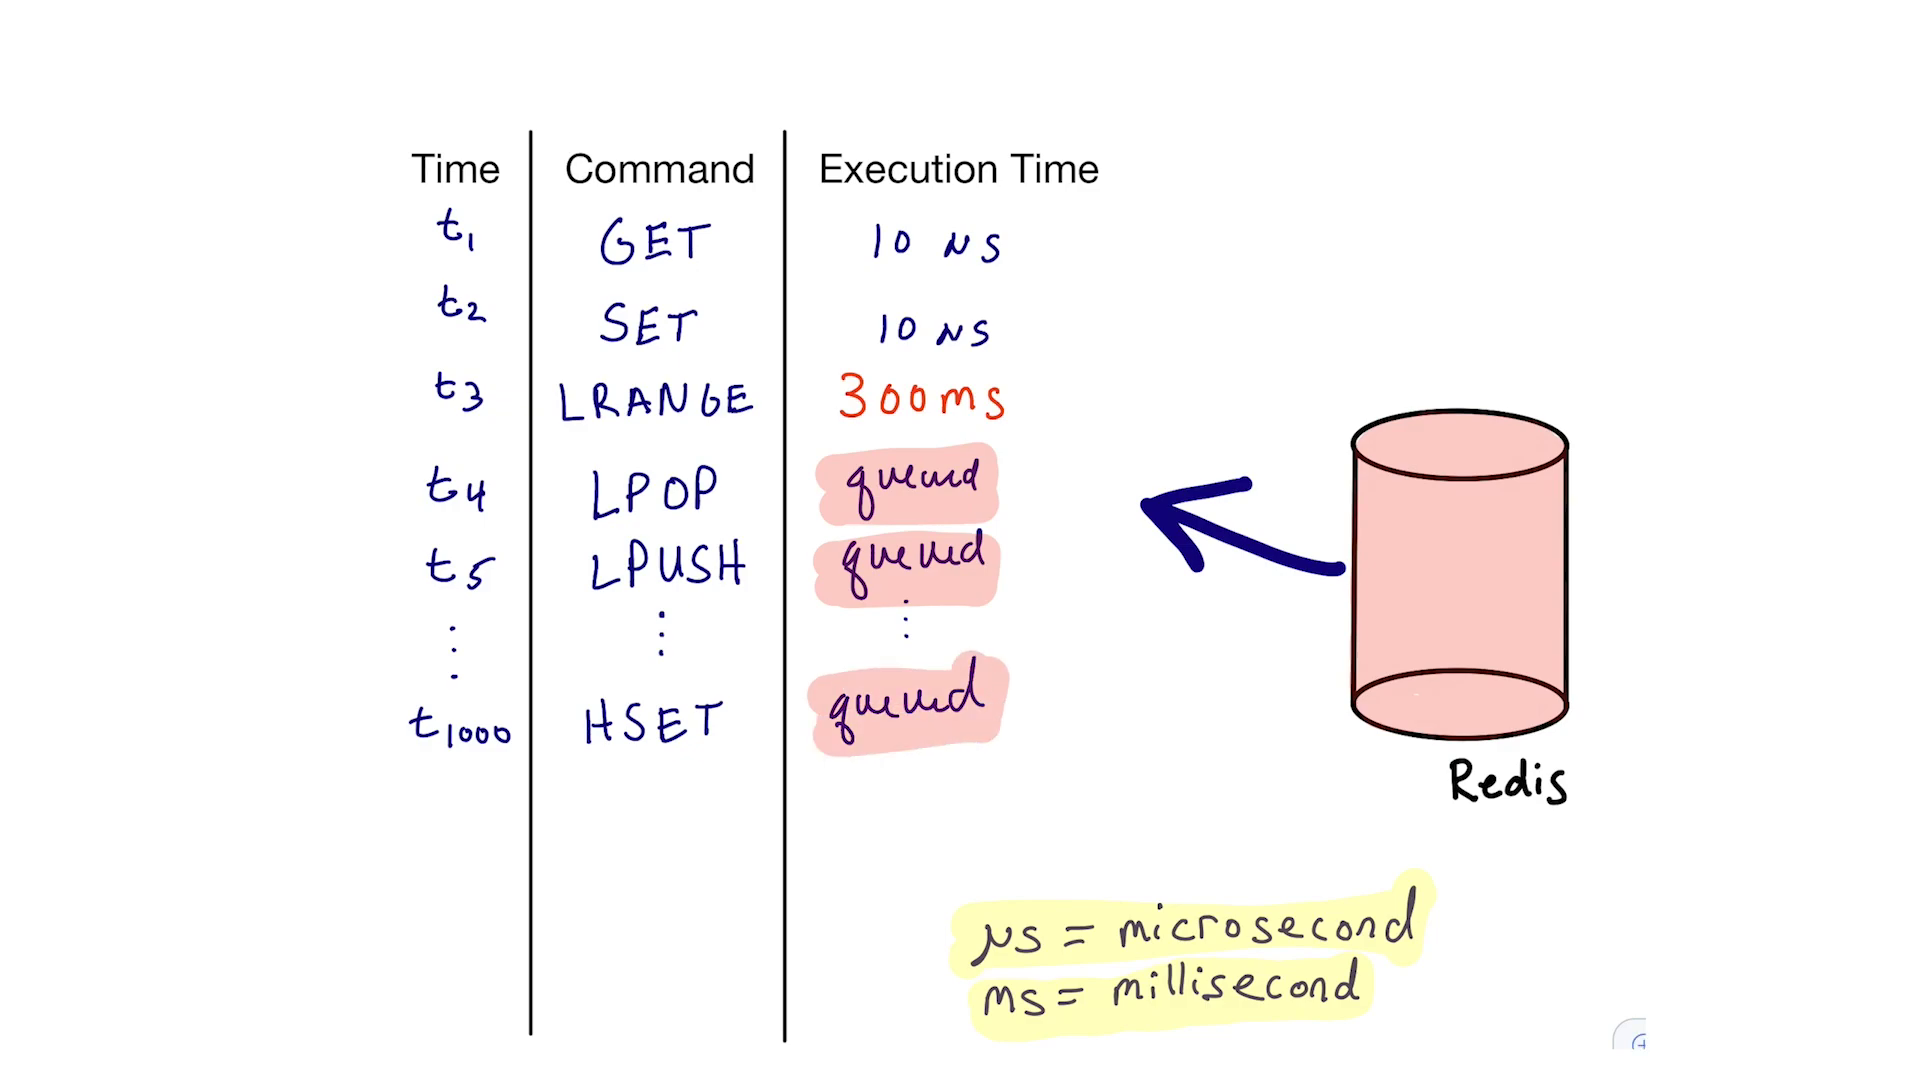 Time Command Execution Time
t1 GET 10 µs
t2 SET 10 µs
t3 LRANGE 300ms
t4 LPOP queued
t5 LPUSH queued
⋮ ⋮ ⋮
t1000 HSET queued
Redis
µs = microsecond
ms = millisecond